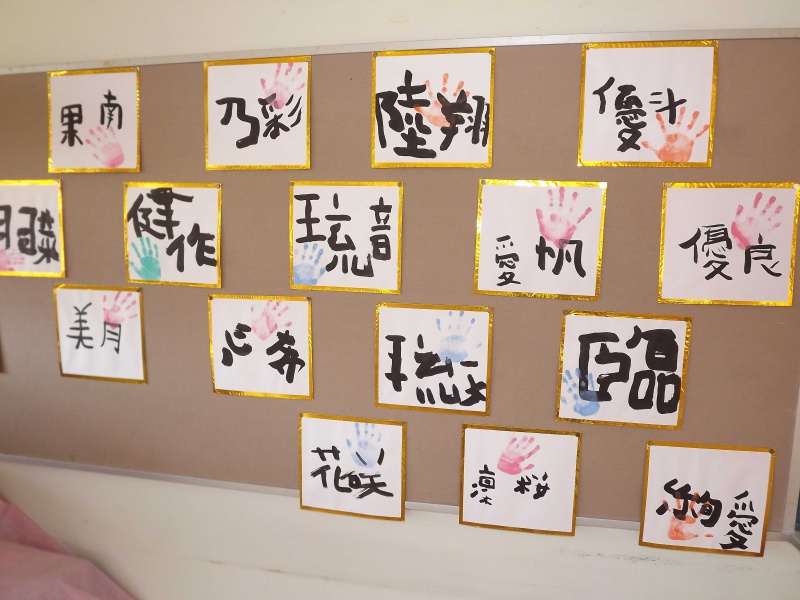 果南
乃彩
陸翔
優斗
健作
琉音
愛帆
優良
美月
心奈
臨
花咲
凛桜
絢愛